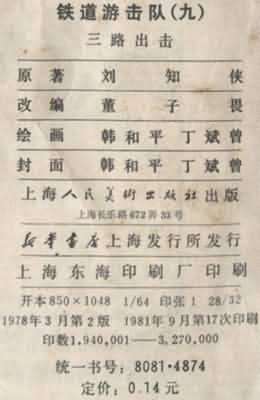 铁道游击队(九)
三路出击
原著 刘知侠
改编 董子畏
绘画 韩和平 丁斌曾
封面 韩和平 丁斌曾
上海人民美术出版社出版
上海长乐路672弄33号
新华书店上海发行所发行
上海东海印刷厂印刷
开本850×1048 1/64 印张1 28/32
1978年3月第2版 1981年9月第17次印刷
印数1,940,001——3,270,000
统一书号:8081·4874
定价:0.14元